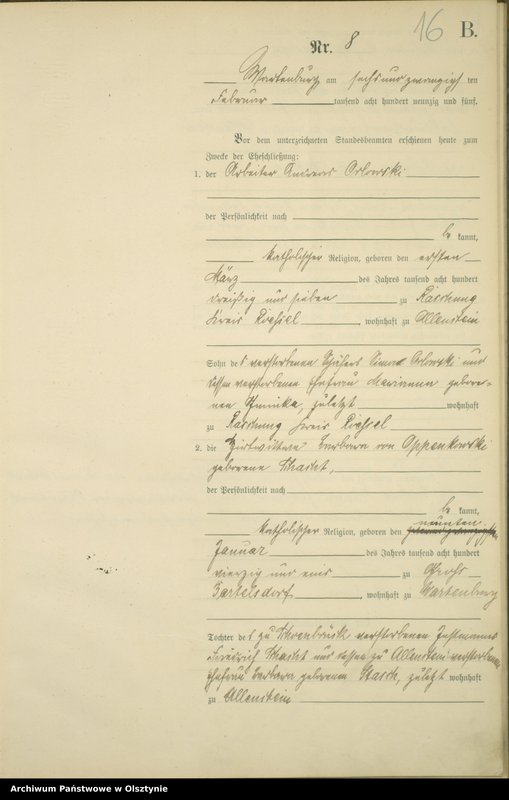 16 B.
Nr. 8
Wartenburg am sechsundzwanzigsten
Februar tausend acht hundert neunzig und fünf.
Vor dem unterzeichneten Standesbeamten erschienen heute zum
Zwecke der Eheschließung:
1. der Arbeiter Andreas Orlowski
der Persönlichkeit nach
be kannt,
katholischer Religion, geboren den ersten
März des Jahres tausend acht hundert
dreißig und sieben zu Raschung
Kreis Roessel, wohnhaft zu Allenstein
Sohn des verstorbenen Schäfers Simon Orlowski und
dessen verstorbenen Ehefrau Marianna gebore-
nen, zuletzt wohnhaft
zu Raschung Kreis Roessel
2. die Barbara von Oppenkowski
geborene
der Persönlichkeit nach
be kannt,
neunten
katholischer Religion, geboren den
Januar des Jahres tausend acht hundert
vierzig und eins zu Groß
Bartelsdorf, wohnhaft zu Wartenburg
Tochter des zu Schönbrück verstorbenen Instmannes
Friedrich und dessen zu Allenstein verstorbenen
Ehefrau Barbara geborenen, zuletzt wohnhaft
zu Allenstein
Archiwum Państwowe w Olsztynie